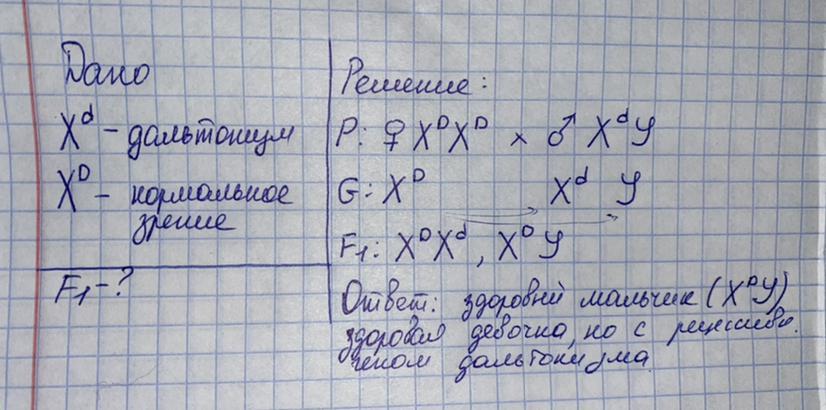 Дано
X^d - дальтонизм
X^D - нормальное
зрение
F₁-?
Решение:
P: ♀ X^D X^D × ♂ X^d У
G: X^D X^d У
F₁: X^D X^d, X^D У
Ответ: здоровый мальчик (X^D У)
здоровая девочка, но с рецессивн.
геном дальтонизма.